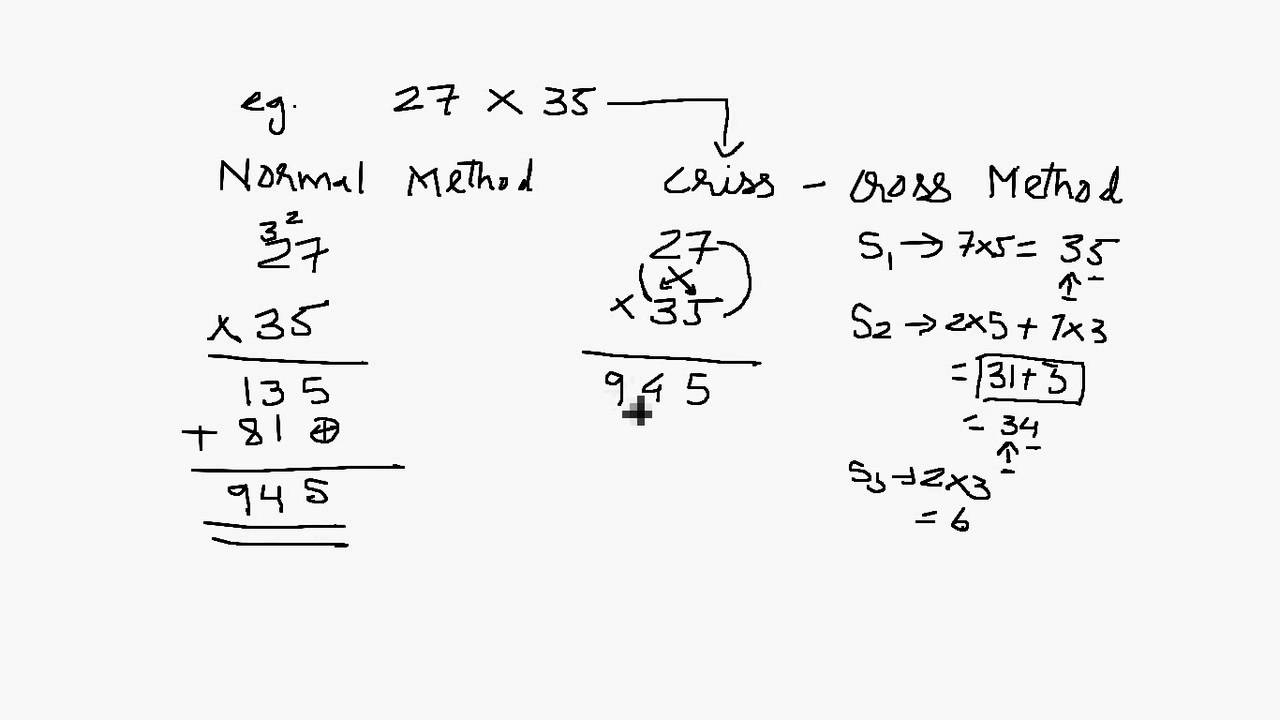 eg. 27 × 35
Normal Method
3 2
27
× 35
135
+ 81⊕
945
Criss - Cross Method
27
× 35
945
S1 → 7×5 = 35
S2 → 2×5 + 7×3
= 31+3
= 34
S3 → 2×3
= 6